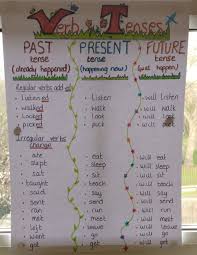 Verb Tenses
PAST PRESENT FUTURE
tense tense tense
(already happened) (happening now) happen)
Regular verbs add ed
listened Listen will Listen
walked walk will walk
looked Look will Look
picked pick will pick
Irregular verbs
change!
ate eat will eat
slept sleep will sleep
sat sit will sit
taught teach will teach
said say will say
sent send will send
ran run will run
met meet will meet
went go will go
got get will get